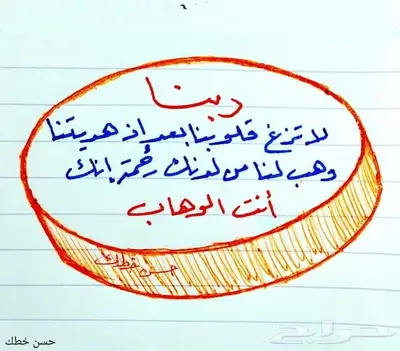 ٦
ربنا
لا تزغ قلوبنا بعد إذ هديتنا
وهب لنا من لدنك رحمة إنك
أنت الوهاب
حسن خطك
حراج
حسن خطك